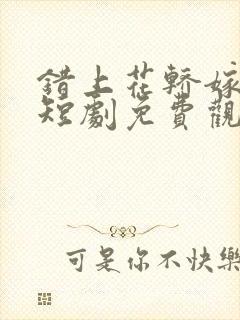 錯上花轎嫁
短劇免費觀
可是你不快樂